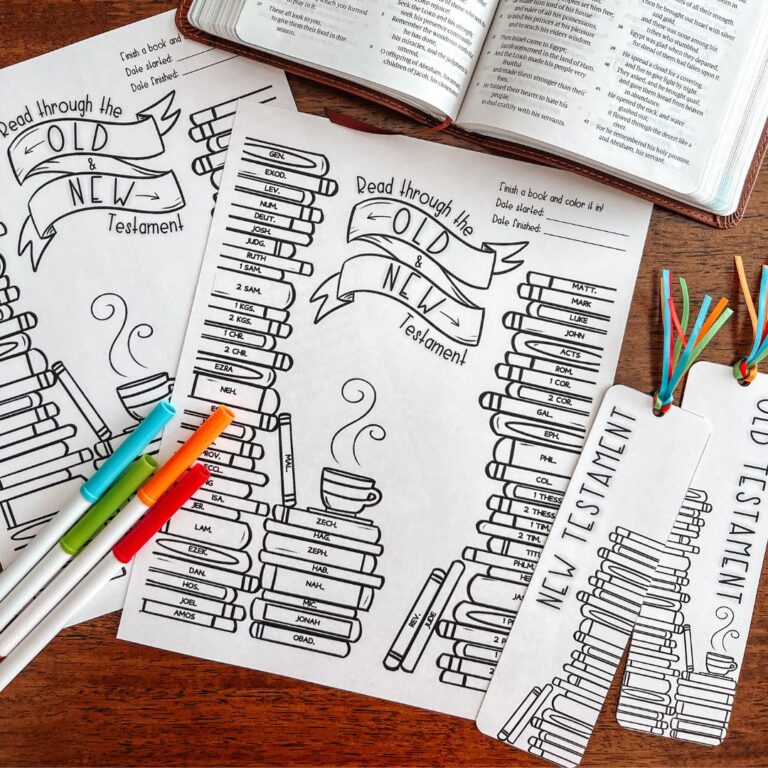 Finish a book and
Date started:
Date finished:
Read through the
OLD
&
NEW
Testament
to play in it.
These all look to you,
to give them their food in due
season.
Seek the LORD and his strength,
seek his presence continually!
Remember the wondrous
he has done,
his miracles, and the judgments
uttered,
O offspring of Abraham,
children of Jacob, his
and to teach his elders wisdom.
Then Israel came to Egypt;
Jacob sojourned in the land of Ham.
And the LORD made his people very
fruitful
and made them stronger than their
He turned their hearts to hate his
people,
to deal craftily with his servants.
and gold,
Egypt was glad when they departed,
for dread of them had fallen upon it.
He spread a cloud for a covering,
and fire to give light by night.
They asked, and he brought quail,
and gave them bread from heaven
in abundance.
He opened the rock, and water
it flowed through the desert like a
river.
For he remembered his holy promise,
and Abraham, his servant.
Read through the
OLD
&
NEW
Testament
Finish a book and color it in!
Date started:
Date finished:
GEN.
EXOD.
LEV.
NUM.
DEUT.
JOSH.
JUDG.
RUTH
1 SAM.
2 SAM.
1 KGS.
2 KGS.
1 CHR.
2 CHR.
EZRA
NEH.
ROV.
ECCL.
NG
ISA.
JER.
LAM.
EZEK.
DAN.
HOS.
JOEL
AMOS
MAL.
ZECH.
HAG.
ZEPH.
HAB.
NAH.
MIC.
JONAH
OBAD.
MATT.
MARK
LUKE
JOHN
ACTS
ROM.
1 COR.
2 COR.
GAL.
EPH.
PHIL.
COL.
1 THESS
2 THESS
1 TIM.
2 TIM.
TIT
PHLM.
HE
JAS
1 P
2 P
REV.
JUDE
NEW TESTAMENT
OLD TESTAMENT